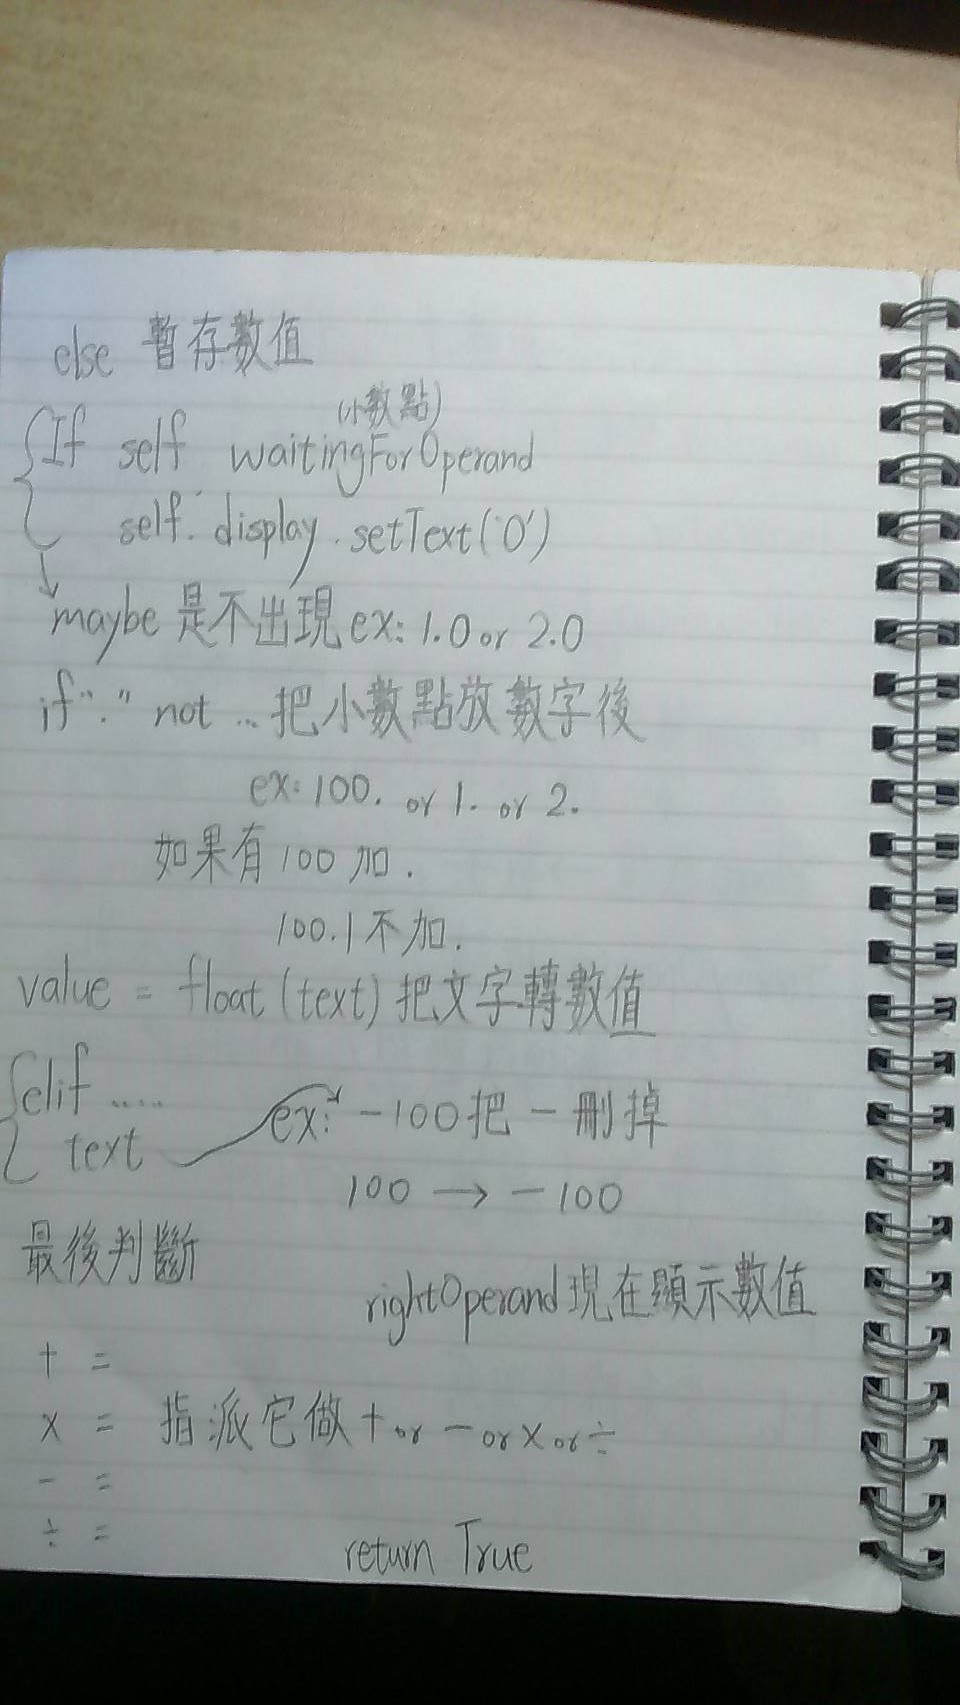 else 暫存數值
(小數點)
If self waitingForOperand
self. display. setText('0')
maybe 是不出現 ex: 1.0 or 2.0
if "." not ... 把小數點放數字後
ex: 100. or 1. or 2.
如果有 100 加 .
100.1 不加.
value = float (text) 把文字轉數值
elif .....
text ex: -100 把 - 刪掉
100 → -100
最後判斷
rightOperand 現在顯示數值
+ =
x = 指派它做 + or - or x or ÷
- =
÷ =
return True